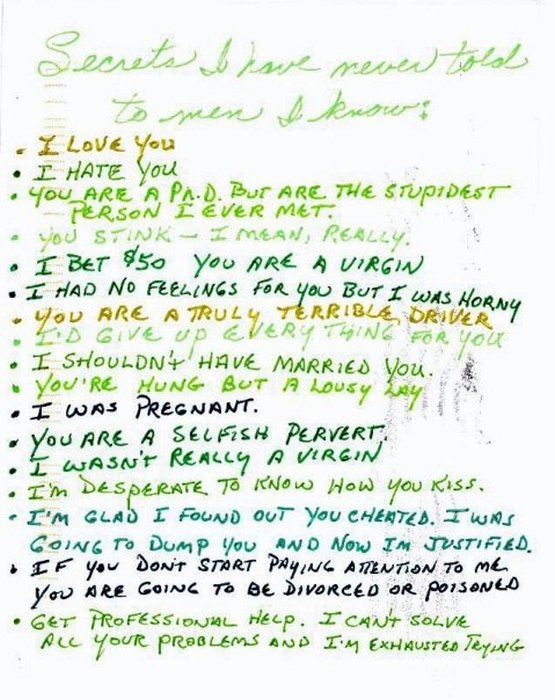 Secrets I have never told
to men I know:
• I LOVE YOU
• I HATE YOU
• YOU ARE A Ph.D. BUT ARE THE STUPIDEST
PERSON I EVER MET.
• YOU STINK – I MEAN, REALLY.
• I BET $50 YOU ARE A VIRGIN
• I HAD NO FEELINGS FOR YOU BUT I WAS HORNY
• YOU ARE A TRULY TERRIBLE DRIVER
• I'D GIVE UP EVERYTHING FOR YOU
• I SHOULDN'T HAVE MARRIED YOU.
• YOU'RE HUNG BUT A LOUSY LAY
• I WAS PREGNANT.
• YOU ARE A SELFISH PERVERT.
• I WASN'T REALLY A VIRGIN
• I'M DESPERATE TO KNOW HOW YOU KISS.
• I'M GLAD I FOUND OUT YOU CHEATED. I WAS
GOING TO DUMP YOU AND NOW IM JUSTIFIED.
• IF YOU DON'T START PAYING ATTENTION TO ME
YOU ARE GOING TO BE DIVORCED OR POISONED
• GET PROFESSIONAL HELP. I CAN'T SOLVE
ALL YOUR PROBLEMS AND I'M EXHAUSTED TRYING